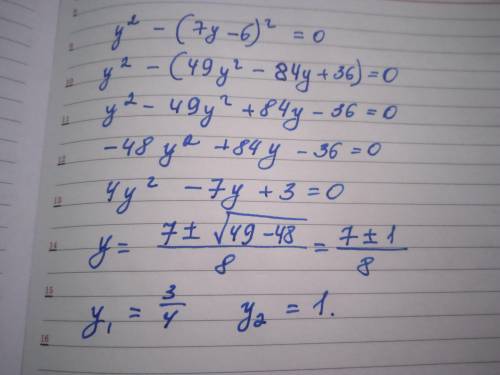 y² - (7y-6)² = 0
y² - (49y² - 84y+36)=0
y² - 49y² +84y - 36 = 0
-48y² +84y - 36=0
4y² - 7y + 3 = 0
y = (7 ± √(49-48))/8 = (7±1)/8
y₁ = 3/4 y₂ = 1.
9
10
11
12
13
14
15
16